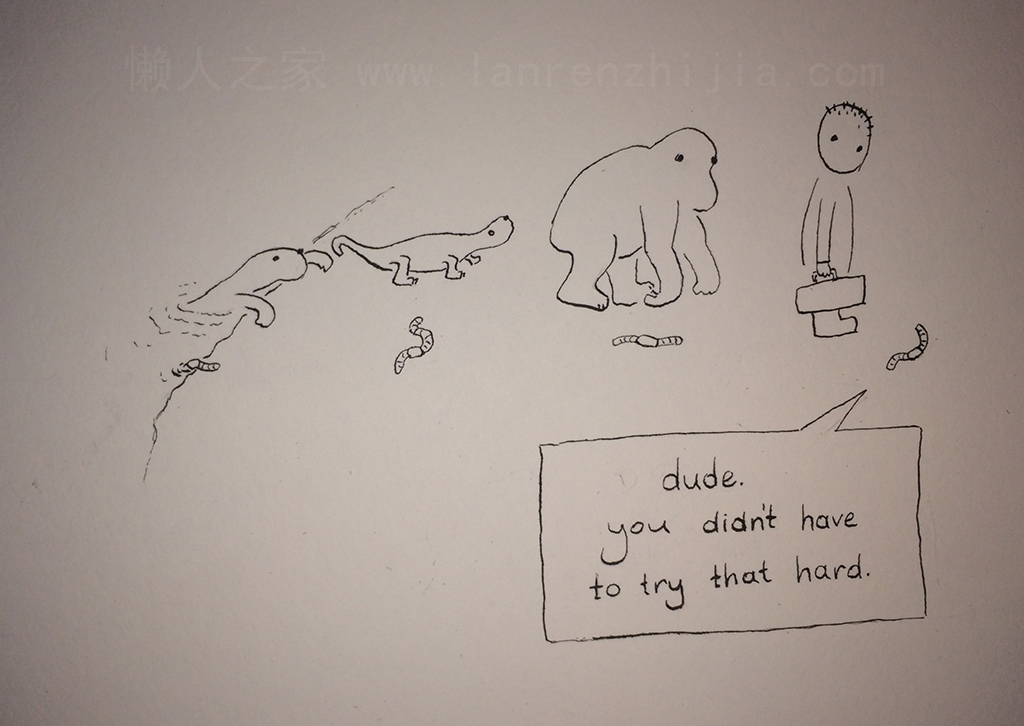 懒人之家 www.lanrenzhijia.com
dude.
you didn't have
to try that hard.